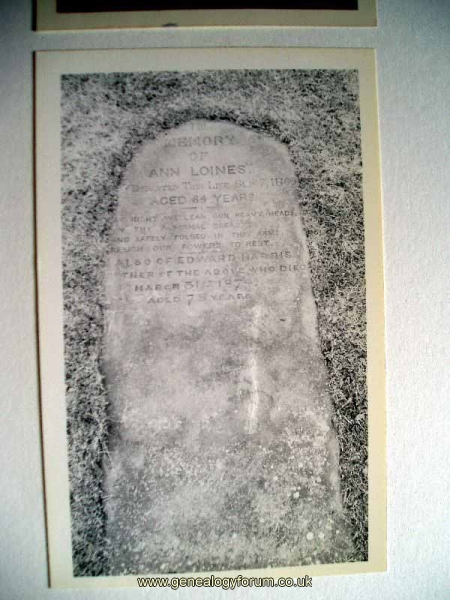 MEMORY
OF
ANN LOINES
DEPARTED THIS LIFE
AGED 64 YEARS
NIGHT WE LEAN OUR HEAVY HEADS
AND SAFELY FOLDED IN THIS
OUR POWERS TO REST.
ALSO OF EDWARD HARRIS
THER OF THE ABOVE WHO DIED
MARCH 31ST
AGED 78 YEARS
www.genealogyforum.co.uk